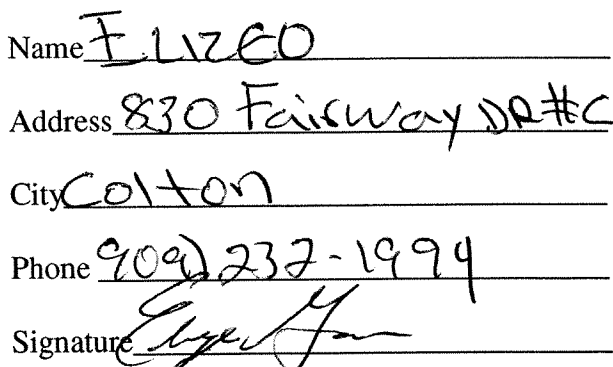 Name ELIZEO
Address 830 Fairway DR #C
City Colton
Phone 909) 232-1994
Signature